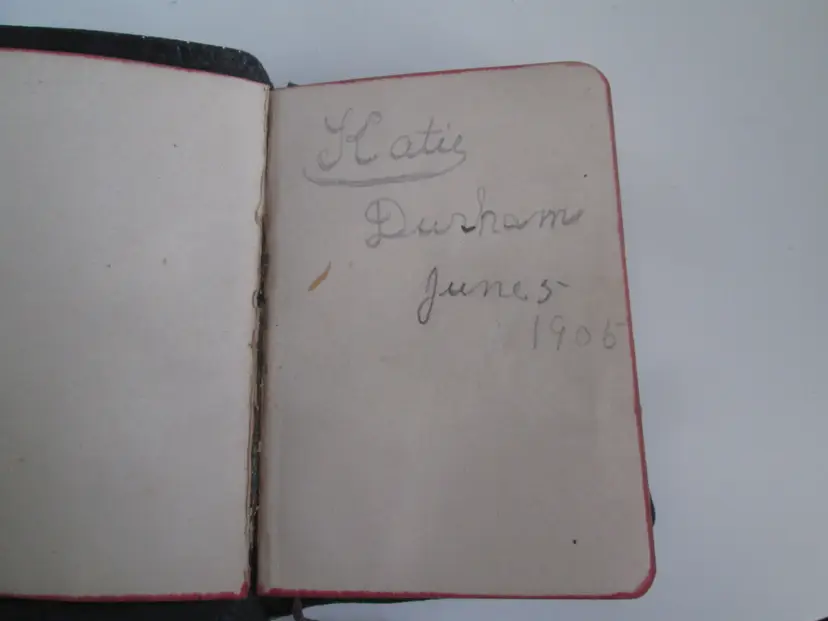 Katie
Durham
June 5
1905